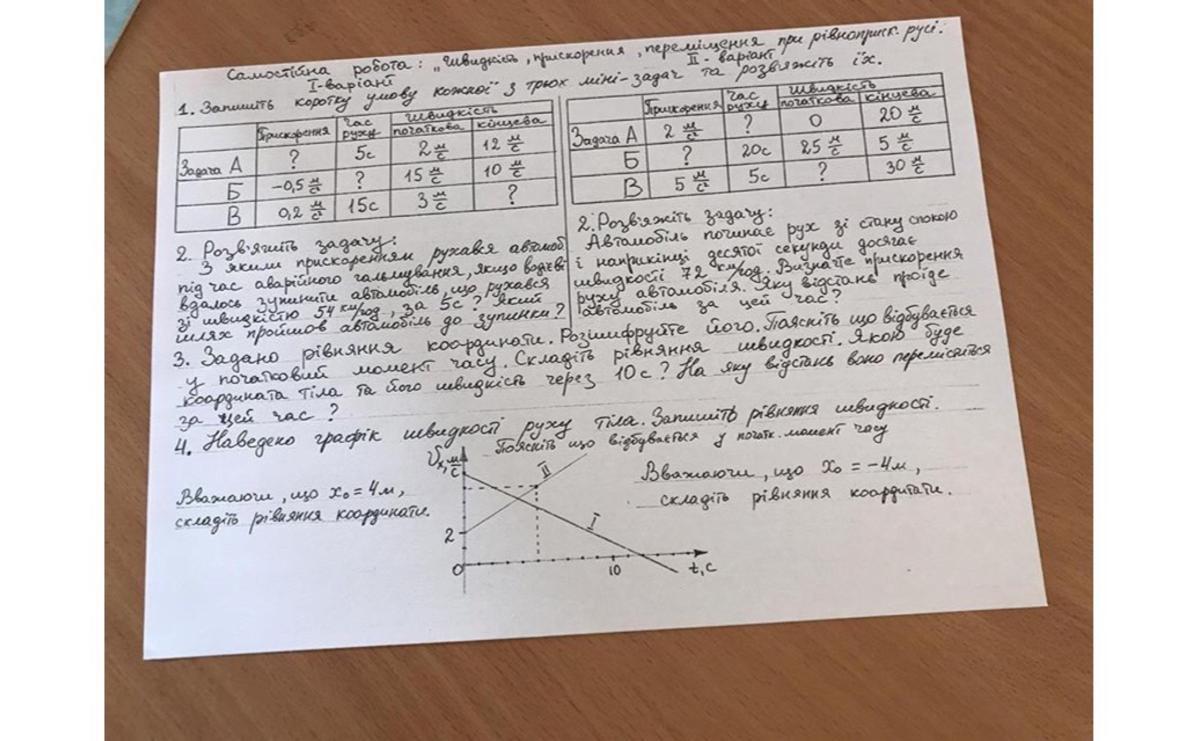 Самостійна робота: „Швидкість, прискорення, переміщення при рівноприск. русі.
I-варіант
II - варіант
1. Запишіть коротку умову кожної з трьох міні-задач та розв'яжіть їх.
Прискорення Час руху Швидкість початкова кінцева
Задача А ? 5с 2 м/с 12 м/с
Б -0,5 м/с² ? 15 м/с 10 м/с
В 0,2 м/с² 15с 3 м/с ?
Прискорення Час руху Швидкість початкова кінцева
Задача А 2 м/с² ? 0 20 м/с
Б ? 20с 25 м/с 5 м/с
В 5 м/с² 5с ? 30 м/с
2. Розв'яжіть задачу:
З яким прискоренням рухався автомоб.
під час аварійного гальмування, якщо водієві
вдалось зупинити автомобіль, що рухався
зі швидкістю 54 км/год, за 5с? Який
шлях пройшов автомобіль до зупинки?
2. Розв'яжіть задачу:
Автомобіль починає рух зі стану спокою
і наприкінці десятої секунди досягає
швидкості 72 км/год. Визначте прискорення
руху автомобіля. Яку відстань проїде
автомобіль за цей час?
3. Задано рівняння координати. Розшифруйте його. Поясніть що відбувається
у початковий момент часу. Складіть рівняння швидкості. Якою буде
координата тіла та його швидкість через 10с? На яку відстань воно переміститься
за цей час?
4. Наведено графік швидкості руху тіла. Запишіть рівняння швидкості.
Поясніть що відбувається у початк. момент часу
Вважаючи, що x₀ = 4м,
складіть рівняння координати.
υx, м/с
II
I
2
0
10
t, с
Вважаючи, що x₀ = -4м,
складіть рівняння координати.